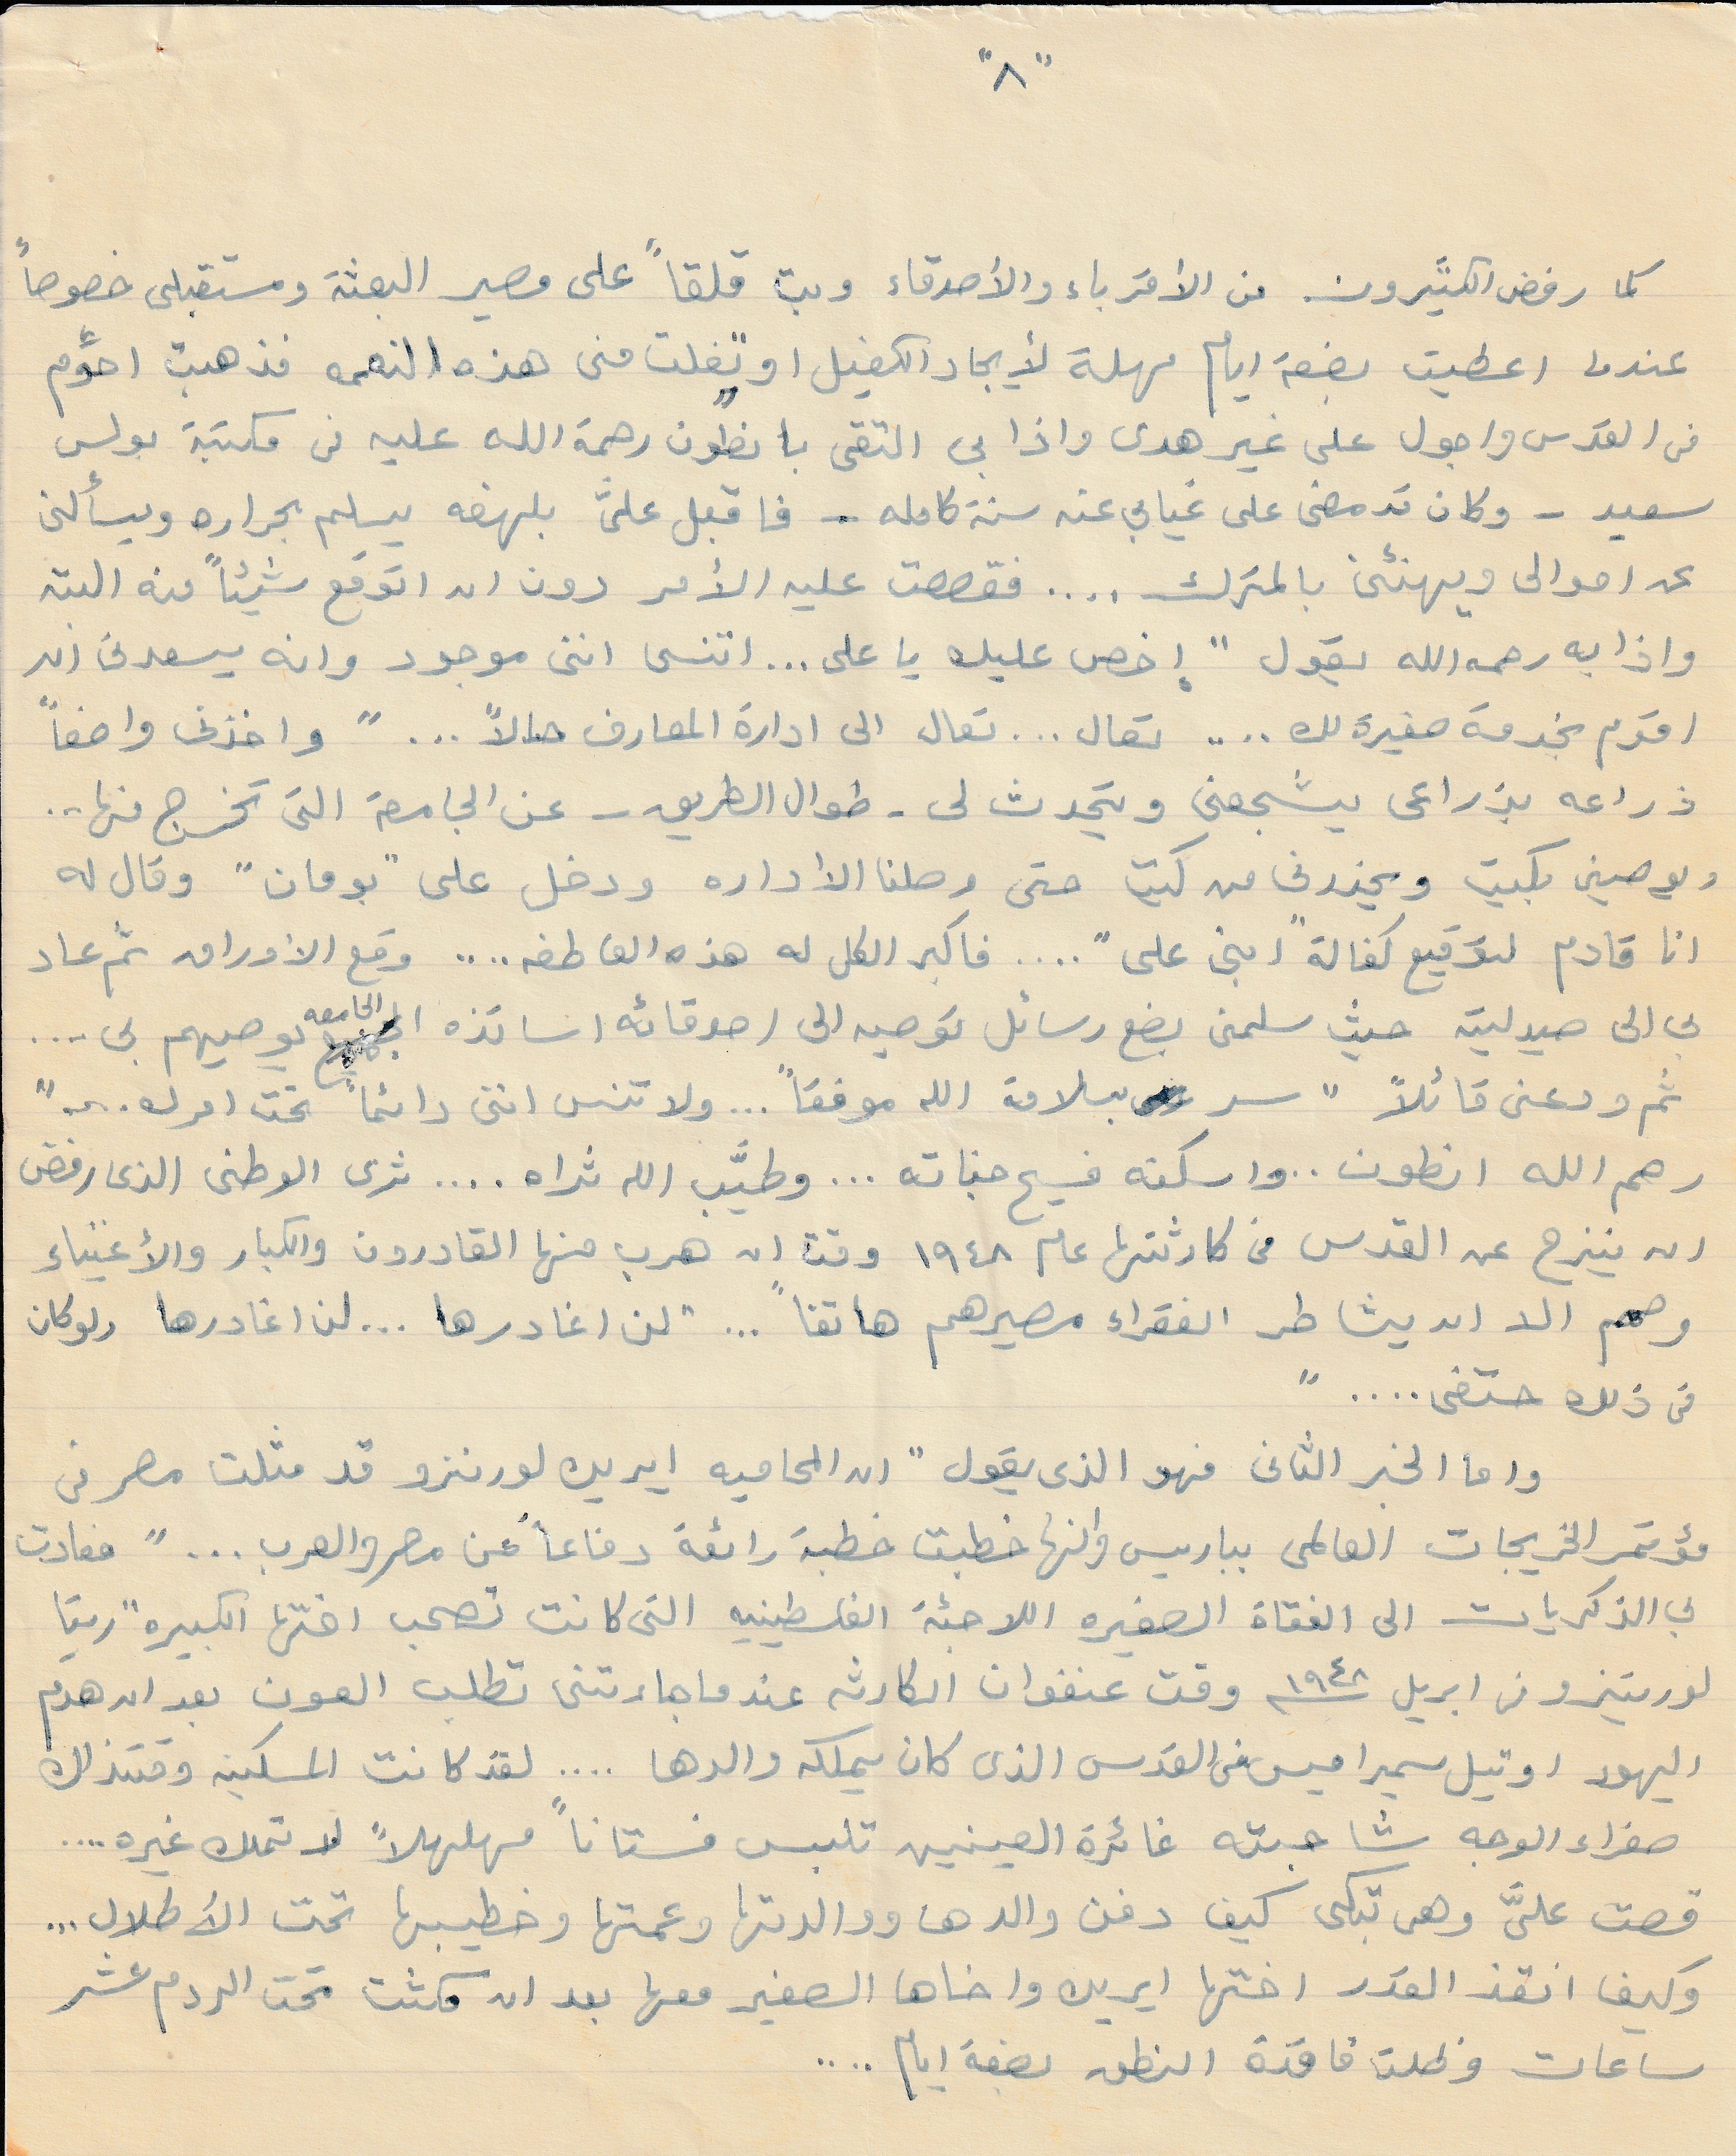 "٨"
كما رفض الكثيرون من الأقرباء والأصدقاء وبت قلقاً على مصير البعثة ومستقبلى خصوصاً
عندما اعطيت بضعة ايام مهلة لأيجاد الكفيل او تفلت منى هذه النعمه فذهبت احوِّم
فى القدس واجول على غير هدى واذا بى التقى بانطون رحمة الله عليه فى مكتبة بولس
سعيد - وكان قد مضى على غيابي عنه سنة كامله - فاقبل علىَّ بلهفه يسلم بحراره ويسألنى
عن احوالى ويهنئنى بالمترك .... فقصصت عليه الأمر دون ان اتوقع شيئاً منه البته
واذا به رحمه الله يقول "إخص عليك يا على... اتنسى اننى موجود وانه يسعدنى ان
اقوم بخدمة صغيرة لك .... تعال... تعال الى ادارة المعارف حالاً..." واخذنى واضعاً
ذراعه بذراعى يشجعنى ويتحدث لى - طوال الطريق - عن الجامعة التى تخرج منها...
ويوصينى بكيت ويحذرنى من كيت حتى وصلنا الاداره ودخل على "بومان" وقال له
انا قادم لتوقيع كفالة "ابنى على".... فاكبر الكل له هذه العاطفه.... وقع الاوراق ثم عاد
بى الى صيدليته حيث سلمنى بضع رسائل توصيه الى اصدقائه اساتذه الجامعه يوصيهم بى ....
ثم ودعنى قائلاً "سر بسلامة الله موفقاً... ولا تنس اننى دائماً تحت امرك...."
رحم الله انطون .. واسكنه فسيح جناته ... وطيَّب الله ثراه .... ثرى الوطنى الذى رفض
ان ينزح عن القدس فى كارثتها عام ١٩٤٨ وقت ان هرب منها القادرون والكبار والأغنياء
وصمم الا ان يشاطر الفقراء مصيرهم هاتفاً ... "لن اغادرها ... لن اغادرها ولو كان
فى ذلك حتفى.... "
واما الخبر الثانى فهو الذى يقول "ان المحاميه ايريك لورنزو قد مثلت مصر فى
مؤتمر الخريجات العالمى بباريس وانها خطبت خطبة رائعة دفاعاً عن مصر والعرب ..." فعادت
بي الذكريات الى الفتاة الصغيره اللاجئة الفلسطينيه التى كانت تصحب اختها الكبيره "ريتا
لورينزو فى ابريل ١٩٤٨ وقت عنفوان الكارثه عندما جاءتنى تطلب العون بعد ان هدم
اليهود اوتيل سميراميس فى القدس الذى كان يملكه والدها .... لقد كانت المسكينه وقتذاك
صفراء الوجه شاحبته غائرة العينين تلبس فستاناً مهلهلاً لا تملك غيره....
قصت علىَّ وهى تبكى كيف دفن والدها ووالدتها وعمتها وخطيبها تحت الأطلال...
وكيف انقذ القدر اختها ايريك واخاها الصغير معها بعد ان مكثت تحت الردم عشر
ساعات وظلت فاقدة النطق بضعة ايام ....